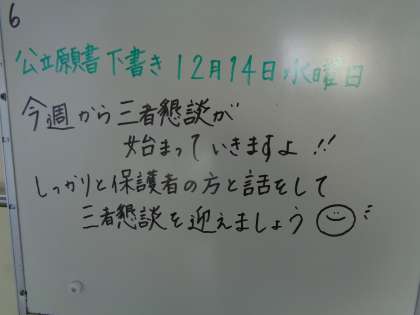 6
公立願書下書き 12月14日水曜日
今週から三者懇談が
始まっていきますよ!!
しっかりと保護者の方と話をして
三者懇談を迎えましょう